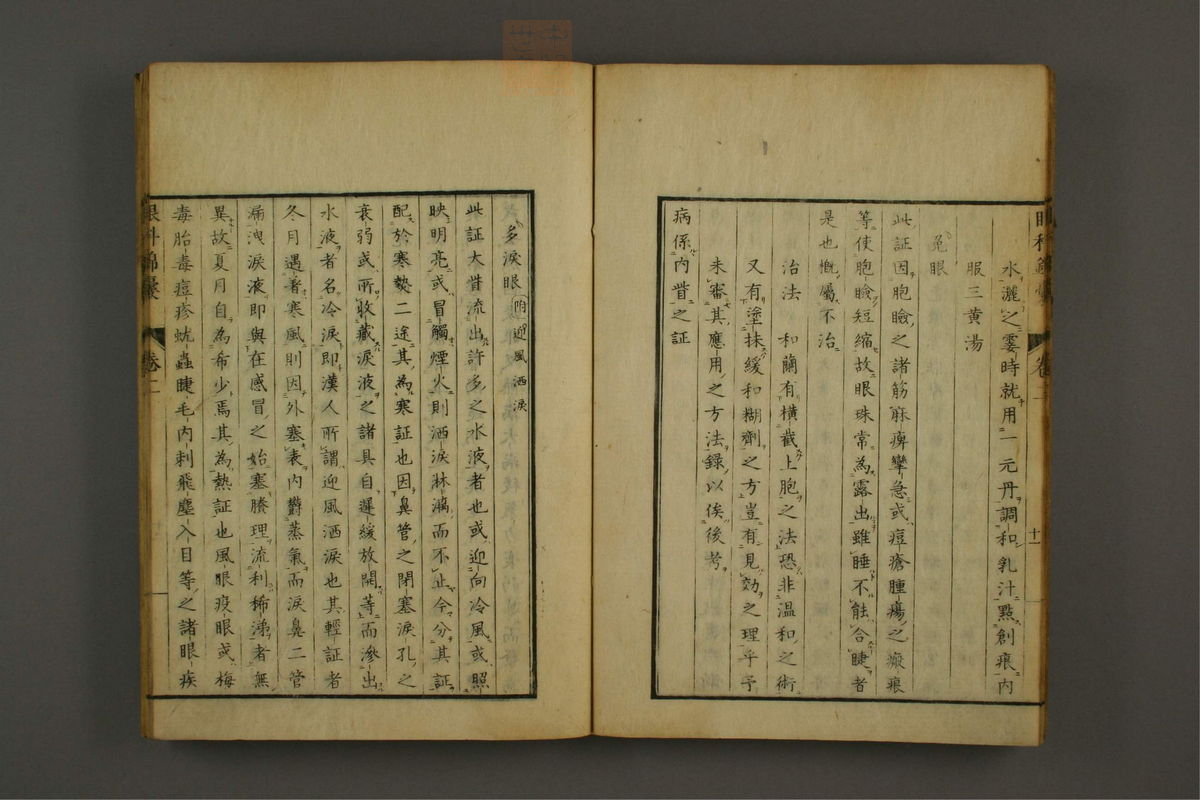 水灑之霎時就用一元丹調和乳汁點創痕内
服三黄湯
兔眼
此証因胞瞼之諸筋麻痺攣急或痘瘡腫瘍之瘢痕
等使胞瞼短縮故眼珠常為露出雖睡不能合睫者
是也慨屬不治
治法 和蘭有横截上胞之法恐非温和之術
又有塗抹緩和糊劑之方豈有見効之理乎予
未審其應用之方法録以俟後考
病係内眥之証
十一
眼科錦嚢 卷二
多淚眼 附迎風洒淚
此証大眥流出許多之水液者也或迎向冷風或照
映明亮或冒觸煙火則洒淚淋漓而不止今分其証
配於寒熱二途其為寒証也因鼻管之閉塞淚孔之
衰弱或所收藏淚液之諸具自遲緩放開等而滲出
水液者名冷淚即漢人所謂迎風洒淚也其輕証者
冬月遇著寒風則因外塞表内欝蒸氣而淚鼻二管
漏洩淚液即與在感冒之始塞腠理流利稀涕者無
異故夏月自為希少焉其為熱証也風眼疫眼或梅
毒胎毒痘疹蚘蟲睫毛内刺飛塵入目等之諸眼疾
眼科錦嚢 卷二